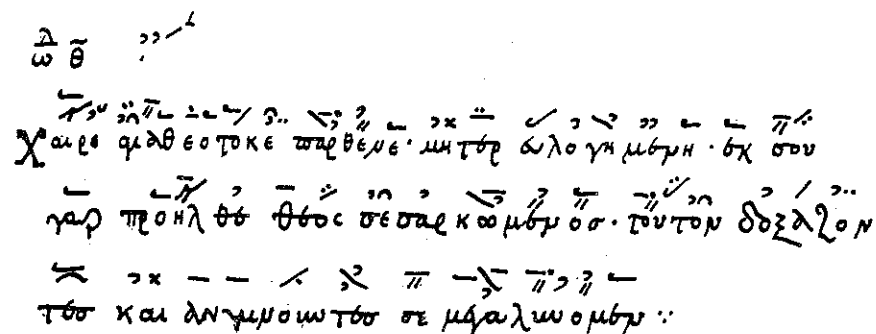 ὠδ θ
Χαιρε αγια θεοτοκε παρθενε· μητερ ευλογημενη· εκ σου
γαρ προηλθε θεος σεσαρκωμενος· τουτον δοξαζον
τες και ανυμνουντες σε μεγαλυνομεν :·